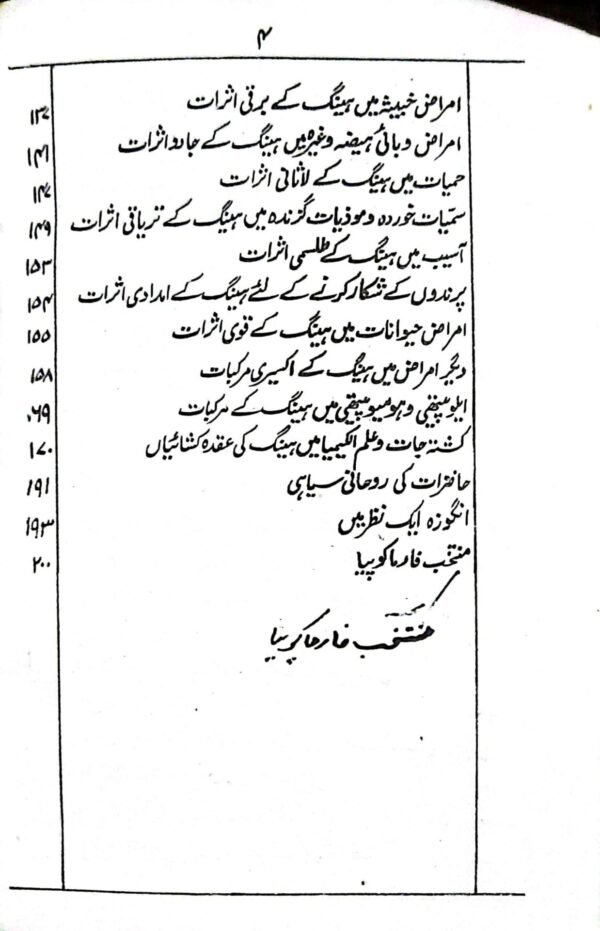 ۴
امراض خبیثہ میں ہینگ کے برقی اثرات ۱۳۷
امراض وبائی ہیضہ وغیرہ میں ہینگ کے جادو اثرات ۱۴۱
حمیات میں ہینگ کے لاثانی اثرات ۱۴۷
سمّیات خوردہ و موذیات گزندہ میں ہینگ کے تریاقی اثرات ۱۴۹
آسیب میں ہینگ کے طلسمی اثرات ۱۵۳
پرندوں کے شکار کرنے کے لئے ہینگ کے امدادی اثرات ۱۵۴
امراض حیوانات میں ہینگ کے قوی اثرات ۱۵۵
دیگر امراض میں ہینگ کے اکسیری مرکبات ۱۵۸
ایلوپیتھی و ہومیوپیتھی میں ہینگ کے مرکبات ۰۶۹
کشتہ جات و علم الکیمیا میں ہینگ کی عقدہ کشائیاں ۱۷۰
حاضرات کی روحانی سیاہی ۱۹۱
انگوزہ ایک نظر میں ۱۹۳
منتخب فارماکوپیا ۲۰۰
منتخب فارماکوپیا